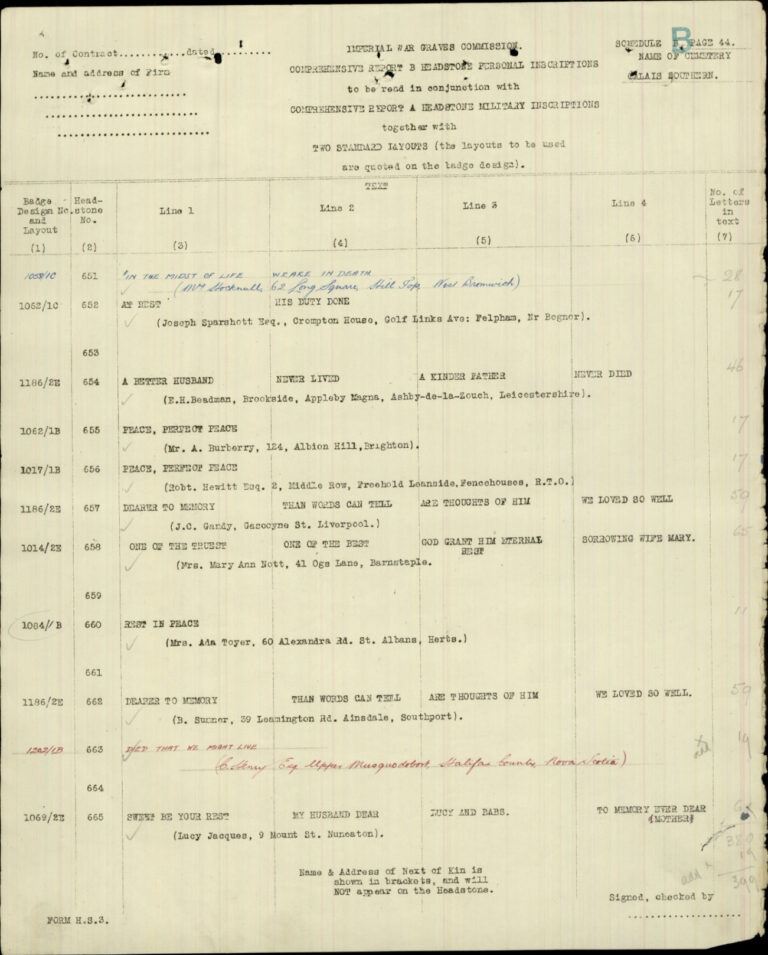 No. of Contract............dated..........
Name and address of Firm
IMPERIAL WAR GRAVES COMMISSION.
COMPREHENSIVE REPORT B HEADSTONE PERSONAL INSCRIPTIONS
to be read in conjunction with
COMPREHENSIVE REPORT A HEADSTONE MILITARY INSCRIPTIONS
together with
TWO STANDARD LAYOUTS (the layouts to be used
are quoted on the badge design).
B
SCHEDULE PAGE 44.
NAME OF CEMETERY
CALAIS SOUTHERN.
TEXT
Badge Design No. and Layout (1)
Head-stone No. (2)
Line 1 (3)
Line 2 (4)
Line 3 (5)
Line 4 (6)
No. of Letters in text (7)
1058/1C 651 "IN THE MIDST OF LIFE WE ARE IN DEATH 28
62 Long Square, Hill Top, West Bromwich)
1062/1C 652 AT REST HIS DUTY DONE 17
(Joseph Sparshott Esq., Crompton House, Golf Links Ave: Felpham, Nr Bognor).
653
1186/2E 654 A BETTER HUSBAND NEVER LIVED A KINDER FATHER NEVER DIED 46
(E.H.Beadman, Brookside, Appleby Magna, Ashby-de-la-Zouch, Leicestershire).
1062/1B 655 PEACE, PERFECT PEACE 17
(Mr. A. Burberry, 124, Albion Hill,Brighton).
1017/1B 656 PEACE, PERFECT PEACE 17
(Robt. Hewitt Esq. 2, Middle Row, Freehold Leanside,Fencehouses, R.T.O.)
1186/2E 657 DEARER TO MEMORY THAN WORDS CAN TELL ARE THOUGHTS OF HIM WE LOVED SO WELL 59
(J.C. Gandy, Gascoyne St. Liverpool.)
1014/2E 658 ONE OF THE TRUEST ONE OF THE BEST GOD GRANT HIM ETERNAL REST SORROWING WIFE MARY. 65
(Mrs. Mary Ann Nott, 41 Ogs Lane, Barnstaple.
659
1064/1B 660 REST IN PEACE 11
(Mrs. Ada Toyer, 60 Alexandra Rd. St. Albans, Herts.)
661
1186/2E 662 DEARER TO MEMORY THAN WORDS CAN TELL ARE THOUGHTS OF HIM WE LOVED SO WELL. 59
(B. Sumner, 39 Leamington Rd. Ainsdale, Southport).
1202/1B 663 DIED THAT WE MIGHT LIVE add 19
(C Henry Esq Upper Musquodoboit, Halifax County, Nova Scotia)
664
1069/2E 665 SWEET BE YOUR REST MY HUSBAND DEAR LUCY AND BABS. TO MEMORY EVER DEAR (MOTHER)
(Lucy Jacques, 9 Mount St. Nuneaton).
380
add 19
399
Name & Address of Next of Kin is
shown in brackets, and will
NOT appear on the Headstone.
Signed, checked by
FORM H.S.3.